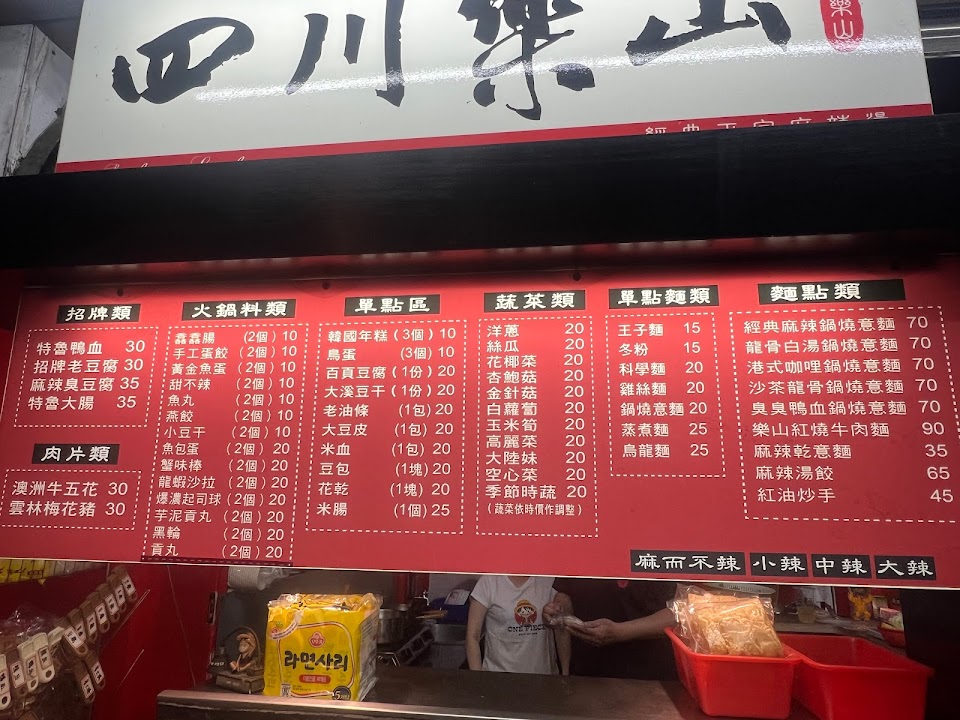 四川樂山
樂山
招牌類
特魯鴨血 30
招牌老豆腐 30
麻辣臭豆腐 35
特魯大腸 35
肉片類
澳洲牛五花 30
雲林梅花豬 30
火鍋料類
鑫鑫腸 (2個) 10
手工蛋餃 (2個) 10
黃金魚蛋 (2個) 10
甜不辣 (2個) 10
魚丸 (2個) 10
燕餃 (2個) 10
小豆干 (2個) 10
魚包蛋 (2個) 20
蟹味棒 (2個) 20
龍蝦沙拉 (2個) 20
爆濃起司球 (2個) 20
芋泥貢丸 (2個) 20
黑輪 (2個) 20
貢丸 (2個) 20
單點區
韓國年糕 (3個) 10
鳥蛋 (3個) 10
百頁豆腐 (1份) 20
大溪豆干 (1份) 20
老油條 (1包) 20
大豆皮 (1包) 20
米血 (1包) 20
豆包 (1塊) 20
花乾 (1塊) 20
米腸 (1個) 25
蔬菜類
洋蔥 20
絲瓜 20
花椰菜 20
杏鮑菇 20
金針菇 20
白蘿蔔 20
玉米筍 20
高麗菜 20
大陸妹 20
空心菜 20
季節時蔬 20
(蔬菜依時價作調整)
單點麵類
王子麵 15
冬粉 15
科學麵 20
雞絲麵 20
鍋燒意麵 20
蒸煮麵 25
烏龍麵 25
麵點類
經典麻辣鍋燒意麵 70
龍骨白湯鍋燒意麵 70
港式咖哩鍋燒意麵 70
沙茶龍骨鍋燒意麵 70
臭臭鴨血鍋燒意麵 70
樂山紅燒牛肉麵 90
麻辣乾意麵 35
麻辣湯餃 65
紅油炒手 45
麻而不辣 小辣 中辣 大辣
라면사리
ONE PIECE